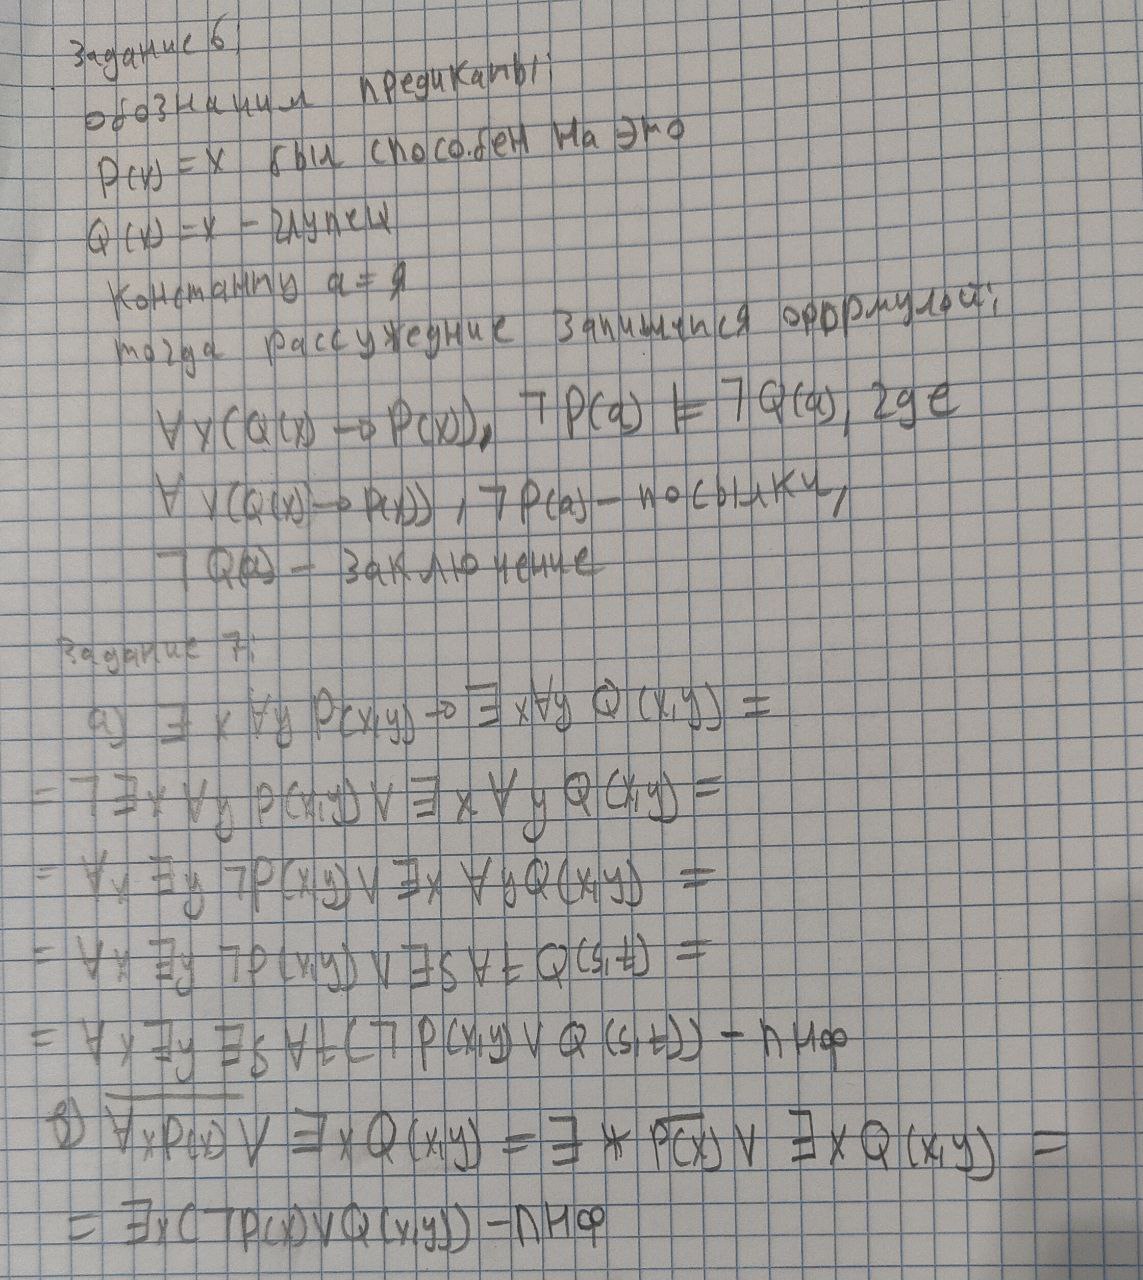 Задание 6:
обозначим предикаты:
P(x) = x был способен на это
Q(x) = x – глупец
Константу a = я
тогда рассуждение запишится формулой:
∀x(Q(x) → P(x)), ¬P(a) ⊨ ¬Q(a), где
∀x(Q(x) → P(x)), ¬P(a) – посылки,
¬Q(a) – заключение
Задание 7:
а) ∃x∀y P(x,y) → ∃x∀y Q(x,y) =
= ¬∃x∀y P(x,y) ∨ ∃x∀y Q(x,y) =
= ∀x∃y ¬P(x,y) ∨ ∃x∀y Q(x,y) =
= ∀x∃y ¬P(x,y) ∨ ∃s∀t Q(s,t) =
= ∀x∃y∃s∀t (¬P(x,y) ∨ Q(s,t)) – ПНФ
в) ¬∀xP(x) ∨ ∃xQ(x,y) = ∃x ¬P(x) ∨ ∃xQ(x,y) =
= ∃x(¬P(x) ∨ Q(x,y)) – ПНФ